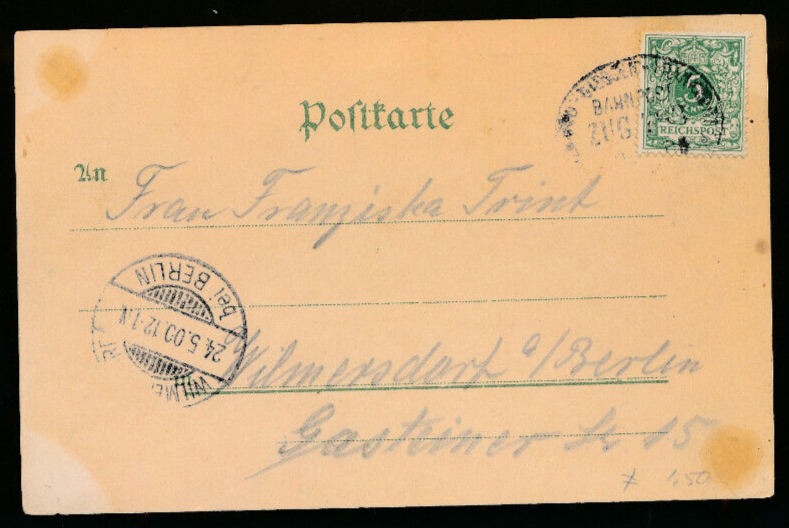 Postkarte
BAHNPOST
ZUG
5
REICHSPOST
An
Frau Franziska Trint
Wilmersdorf a/Berlin
Gasteiner Str 15
WILMERSDORF
bei BERLIN
24.5.00.12-1.N
* 1,50